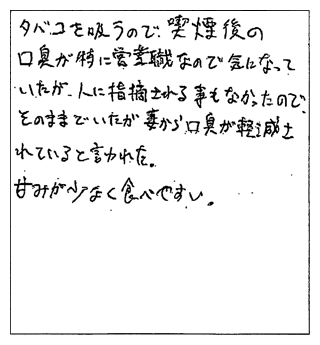 タバコを吸うので、喫煙後の
口臭が特に営業職なので気になって
いたが、人に指摘される事もなかったので、
そのままでいたが妻から口臭が軽減さ
れていると言われた。
甘みが少なく食べやすい。